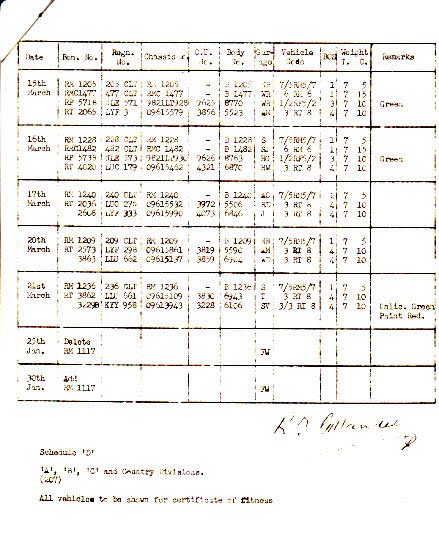 Date Bon. No. Regn. No. Chassis No. C.U. No. Body No. Gar- age. Vehicle Code BOS Weight T. C. Remarks
15th RM 1205 205 CLT RM 1205 - B 1205 7/5RM5/7 1 7 5
March RMC1477 477 CLT RMC 1477 - B 1477 6 RM 6 1 7 15
RF 5718 NLE 571 9821LT928 9625 8770 WR 1/2RF5/2 3 7 10 Green
RT 2065 LYF 3 09615579 3856 5523 3 RT 8 4 7 10
16th RM 1228 228 CLT RM 1228 - B 1228 S 7/5RM5/7 1 7 5
March RMC1482 482 CLT RMC 1482 - B 1482 6 RM 6 1 7 15
RF 5738 573 9626 8763 1/2RF5/2 3 7 10 Green
RT 4620 LUC 179 09615462 4321 6870 3 RT 8 4 7 10
17th RM 1240 240 CLT RM 1240 - B 1240 7/5RM5/7 1 7 5
March RT 2036 LUC 09615532 3972 5506 3 RT 8 4 7 10
2608 LYF 333 09615990 4073 6846 J 3 RT 8 4 7 10
20th RM 1209 209 CLT RM 1209 - B 1209 7/5RM5/7 1 7 5
March RT 2573 LYF 298 09615861 3819 5590 3 RT 8 4 7 10
3863 LLU 662 09615137 3859 3 RT 8 4 7 10
21st RM 1236 236 CLT RM 1236 - B 1236 S 7/5RM5/7 1 7 5
March RT 3862 LLU 661 09615109 3830 6943 T 3 RT 8 4 7 10
3229B KYY 958 09613943 3228 6106 SV 3/3 RT 8 4 7 10 Unlic. Green
Paint Red.
25th Delete
Jan. RM 1117 FW
30th Add
Jan. RM 1117 FW
Schedule 'D'
'A', 'B', 'C' and Country Divisions.
All vehicles to be shown for certificate of fitness